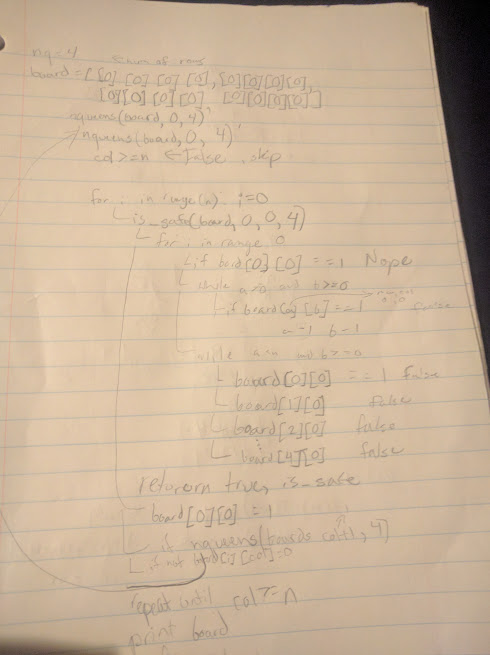 nq = 4
board = [ [0] [0] [0] [0], [0][0][0][0],
[0][0][0][0] [0][0][0][0] ]
nqueens(board, 0, 4)
nqueens(board, 0, 4)
col >= n ← False, skip
for i in range(n). i=0
is_safe(board, 0, 0, 4)
for i in range 0
if board[0][0] == 1 Nope
while a>=0 and b>=0
if board[a][b] == 1 false
a-1 b-1
while and b>=0
board[0][0] == 1 false
board[1][0] false
board[2][0] false
board[4][0] false
return true, is_safe
board[0][0] = 1
if nqueens(board, col+1, 4)
if not board[i][col]=0
repeat until col>=n
print board